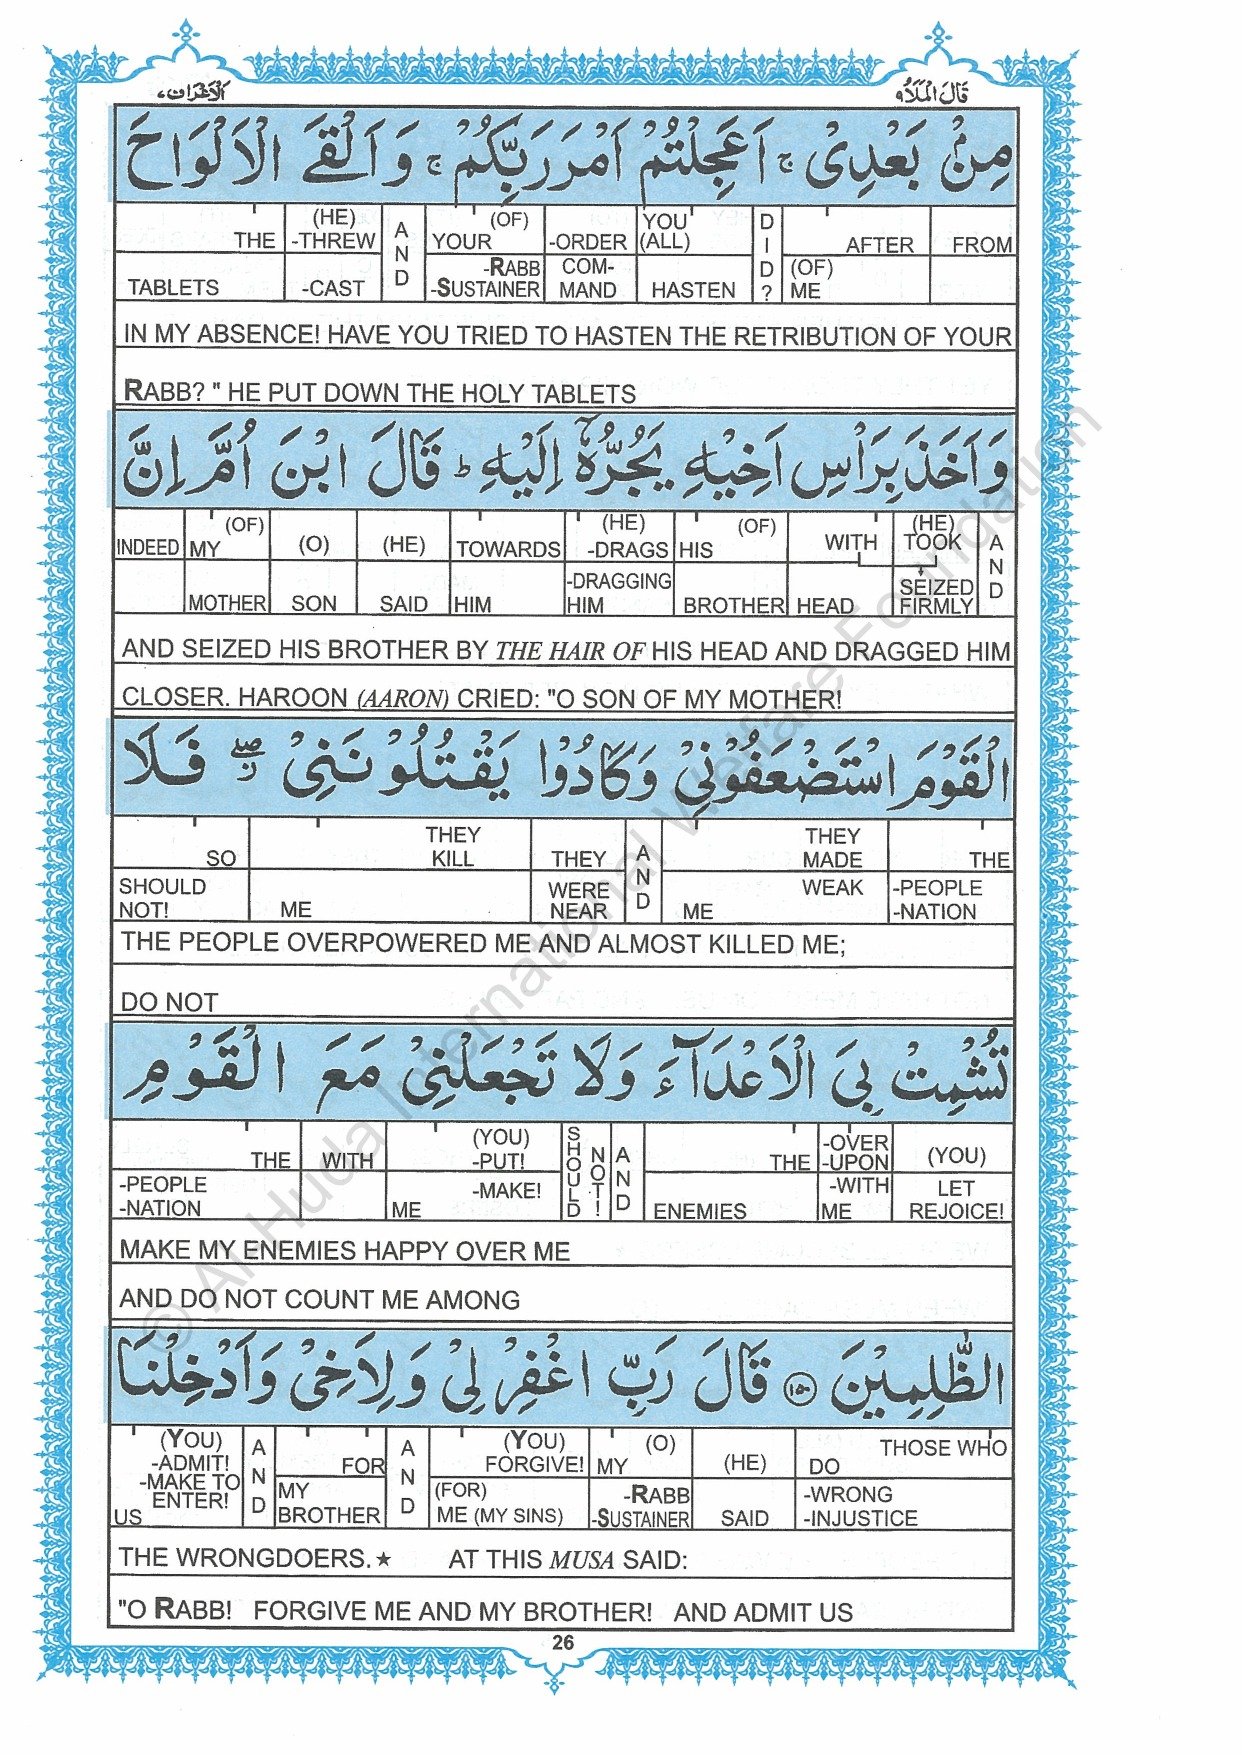 الاعراف ٧ قال الملأ ٩
مِنْۢ بَعْدِىْ ۚ اَعَجِلْتُمْ اَمْرَ رَبِّكُمْ ۚ وَاَلْقَى الْاَلْوَاحَ
THE (HE) -THREW AND YOUR (OF) -ORDER YOU (ALL) DID? AFTER FROM
TABLETS -CAST -RABB -SUSTAINER COM-MAND HASTEN (OF) ME
IN MY ABSENCE! HAVE YOU TRIED TO HASTEN THE RETRIBUTION OF YOUR
RABB? " HE PUT DOWN THE HOLY TABLETS
وَاَخَذَ بِرَاْسِ اَخِيْهِ يَجُرُّهٗۤ اِلَيْهِ ؕ قَالَ ابْنَ اُمَّ اِنَّ
INDEED MY (OF) (O) (HE) TOWARDS (HE) -DRAGS HIS (OF) WITH (HE) TOOK AND
MOTHER SON SAID HIM -DRAGGING HIM BROTHER HEAD SEIZED FIRMLY
AND SEIZED HIS BROTHER BY THE HAIR OF HIS HEAD AND DRAGGED HIM
CLOSER. HAROON (AARON) CRIED: "O SON OF MY MOTHER!
الْقَوْمَ اسْتَضْعَفُوْنِىْ وَكَادُوْا يَقْتُلُوْنَنِىْ ۖ ز فَلَا
SO THEY KILL THEY AND THEY MADE THE
SHOULD NOT! ME WERE NEAR ME WEAK -PEOPLE -NATION
THE PEOPLE OVERPOWERED ME AND ALMOST KILLED ME;
DO NOT
تُشْمِتْ بِىَ الْاَعْدَآءَ وَلَا تَجْعَلْنِىْ مَعَ الْقَوْمِ
THE WITH (YOU) -PUT! SHOULD NOT! AND THE -OVER -UPON (YOU)
-PEOPLE -NATION ME -MAKE! ENEMIES -WITH ME LET REJOICE!
MAKE MY ENEMIES HAPPY OVER ME
AND DO NOT COUNT ME AMONG
الظّٰلِمِيْنَ ۝١٥٠ قَالَ رَبِّ اغْفِرْ لِىْ وَلِاَخِىْ وَاَدْخِلْنَا
(YOU) -ADMIT! -MAKE TO ENTER! AND FOR AND (YOU) FORGIVE! MY (O) (HE) THOSE WHO DO
US MY BROTHER (FOR) ME (MY SINS) -RABB -SUSTAINER SAID -WRONG -INJUSTICE
THE WRONGDOERS.★ AT THIS MUSA SAID:
"O RABB! FORGIVE ME AND MY BROTHER! AND ADMIT US
26
© Al Huda International Welfare Foundation